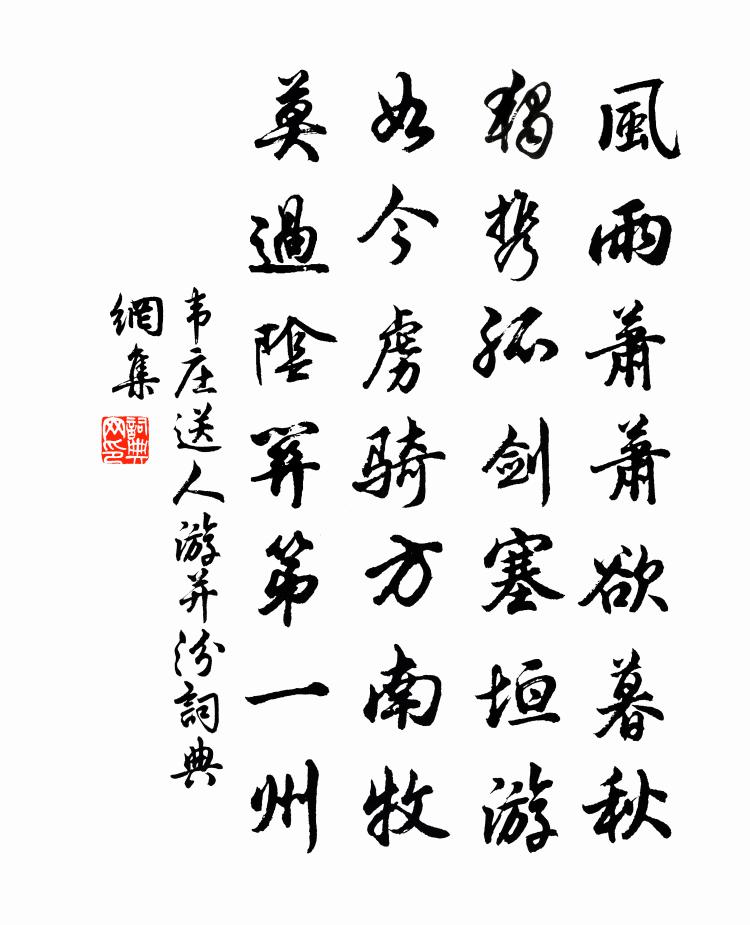 風雨蕭蕭欲暮秋
獨携孤劍塞垣游
如今虜騎方南牧
莫過陰關第一州
韦庄送人游并汾詞典
網集
詞典
网印